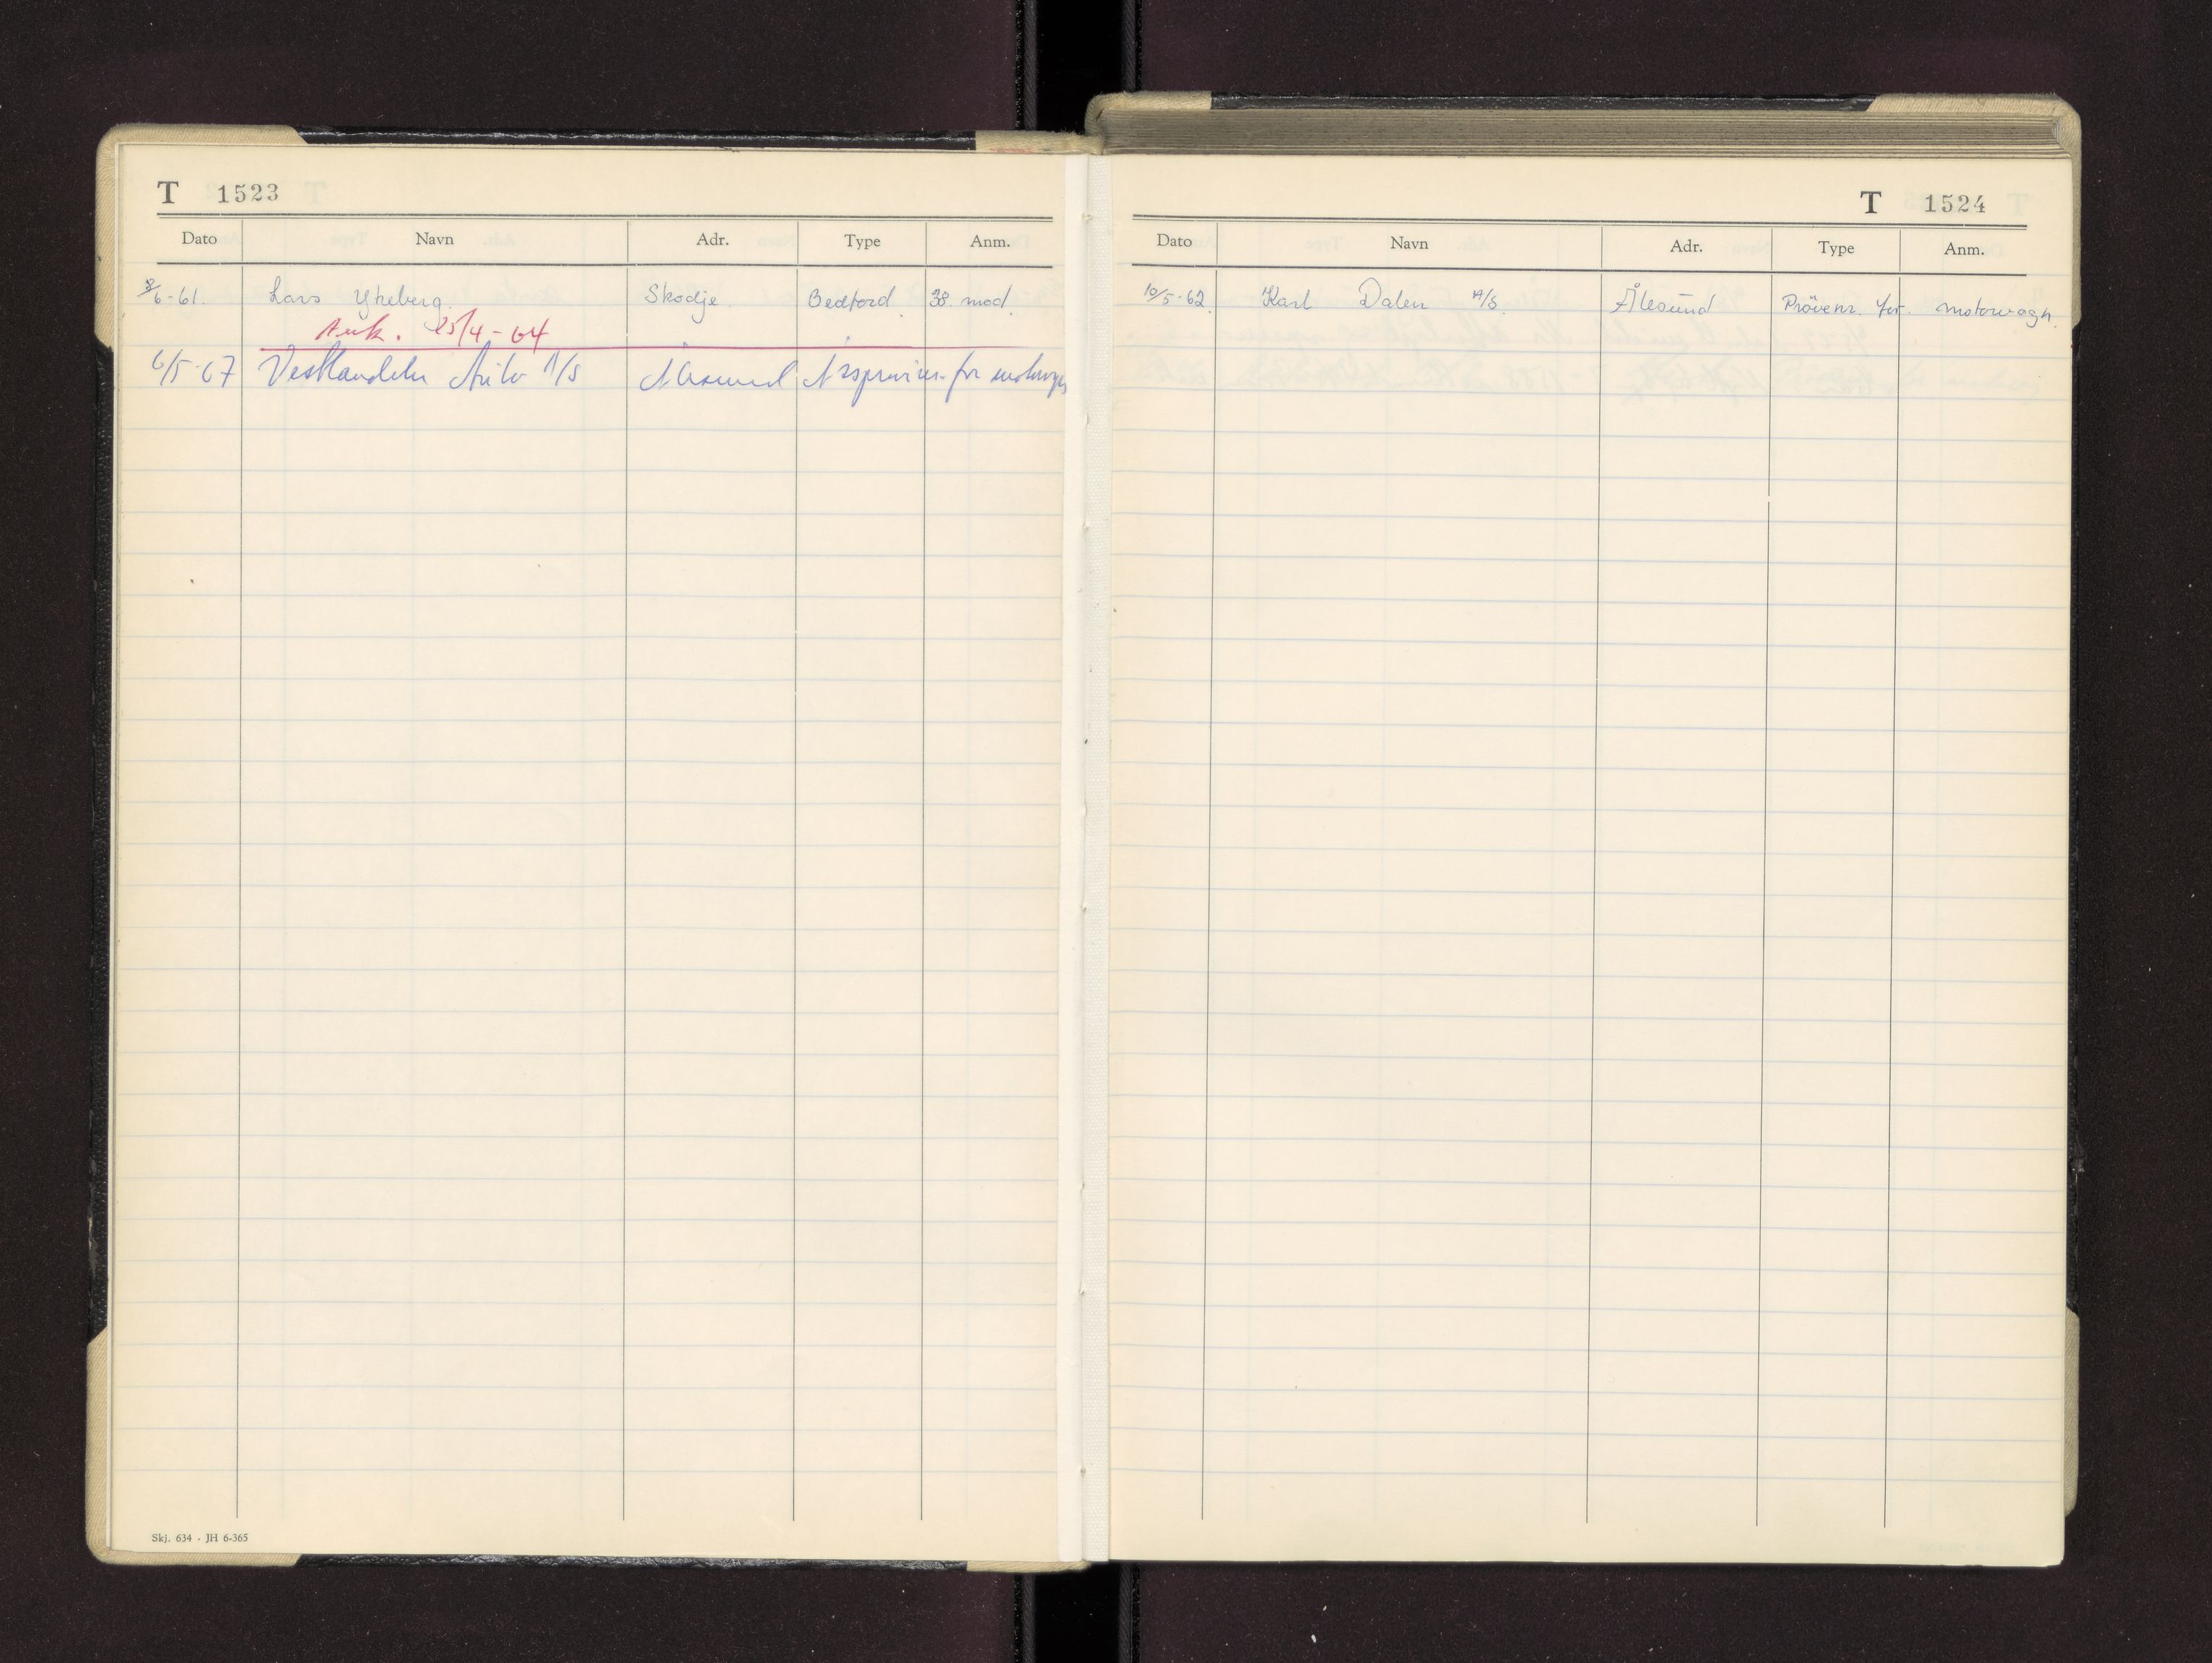 T 1523
Dato Navn Adr. Type Anm.
8/6-61. Lars Ytreberg. Skodje. Bedford. 38 mod.
Avk. 25/4-64
6/5-67 Vestlandets Auto A/S Ålesund Årsprøvenr. for motorvogn
Skj. 634 - JH 6-365
T 1524
Dato Navn Adr. Type Anm.
10/5-62. Karl Dalen A/S. Ålesund Prövenr. for motorvogn.